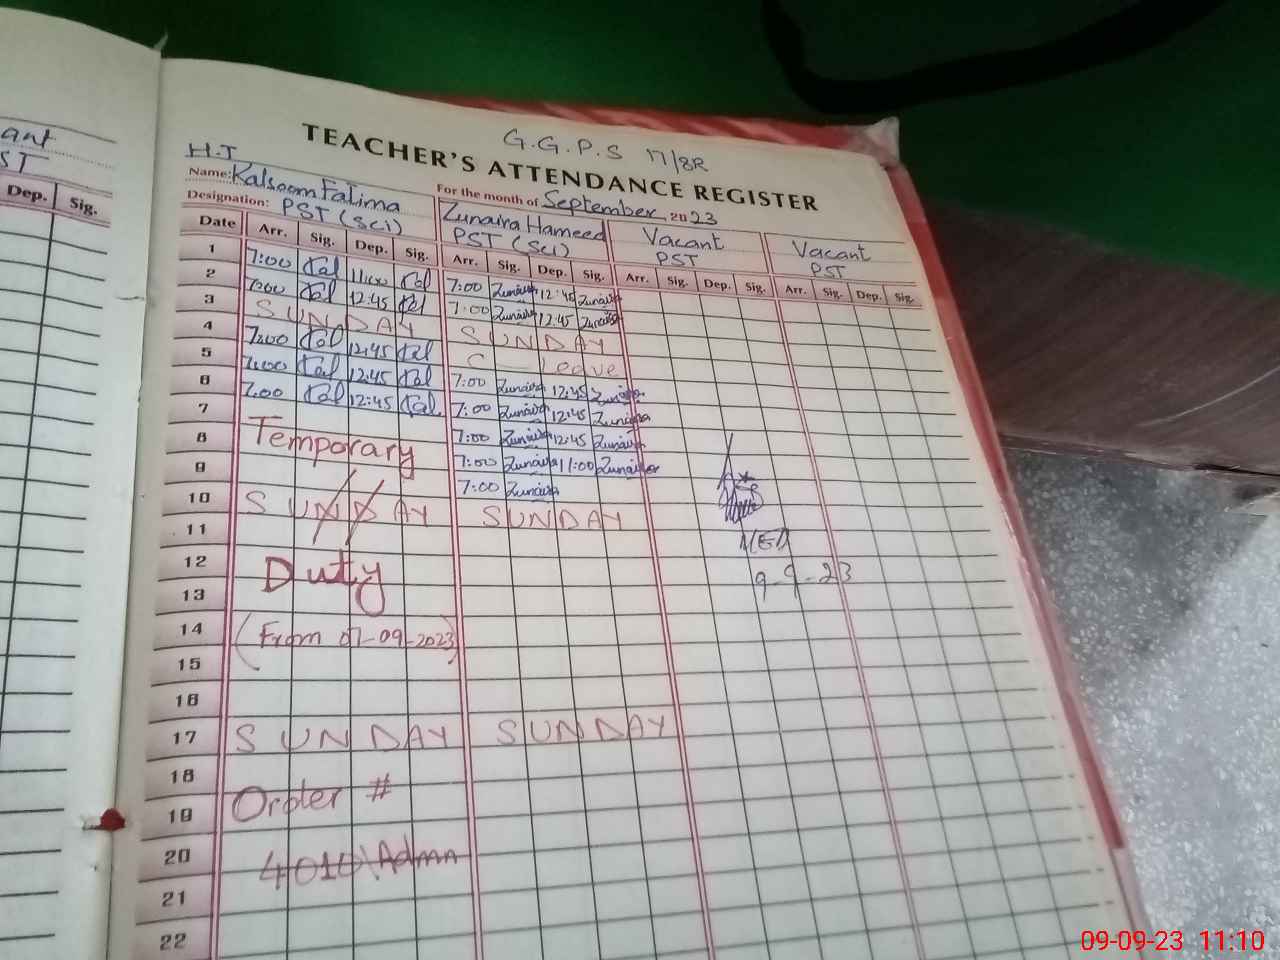 ant
ST
Dep. Sig.
G.G.P.S 17/8R
TEACHER'S ATTENDANCE REGISTER
H.T
Name: Kalsoom Fatima For the month of September 2023
Designation: PST (Sci) Zunaira Hameed PST (Sci) Vacant PST Vacant PST
Date Arr. Sig. Dep. Sig. Arr. Sig. Dep. Sig. Arr. Sig. Dep. Sig. Arr. Sig. Dep. Sig.
1 7:00 Kal 11:00 Kal 7:00 Zunaira 12:45 Zunaira
2 7:00 Kal 12:45 Kal 7:00 Zunaira 12:45 Zunaira
3 SUNDAY SUNDAY
4 7:00 Kal 12:45 Kal C Leave
5 7:00 Kal 12:45 Kal 7:00 Zunaira 12:45 Zunaira
6 7:00 Kal 12:45 Kal 7:00 Zunaira 12:45 Zunaira
7 Temporary 7:00 Zunaira 12:45 Zunaira
8 7:00 Zunaira 11:00 Zunaira
9 7:00 Zunaira
10 SUNDAY SUNDAY
11
12 Duty 9-9-23
13
14 (From 07-09-2023)
15
16
17 SUNDAY SUNDAY
18
19 Order #
20 4010\Admn
21
22
09-09-23 11:10